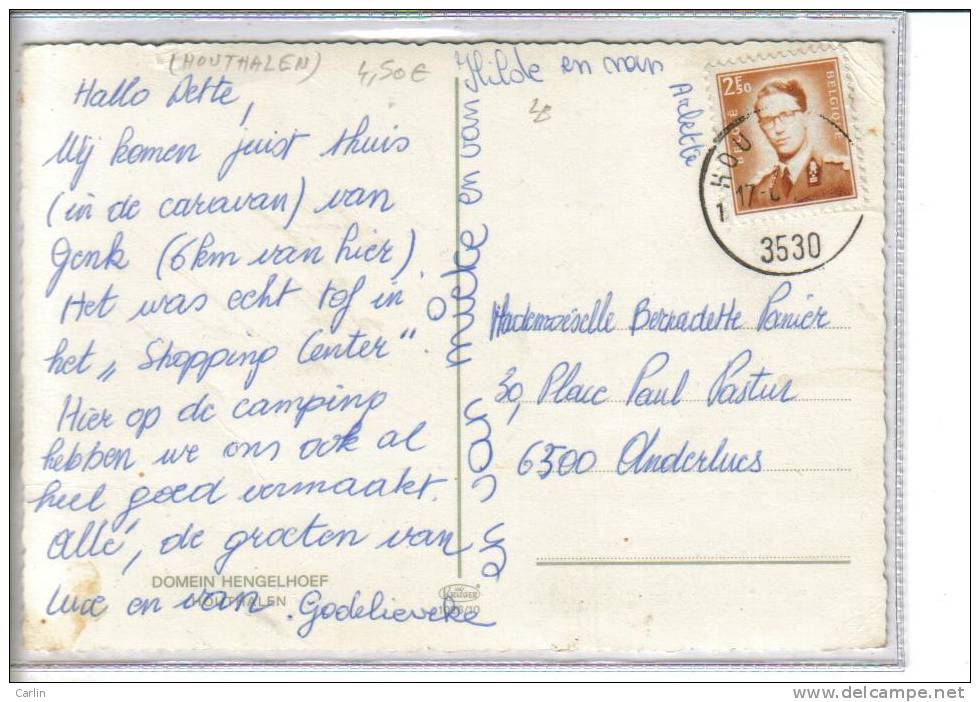 (HOUTHALEN)
4,50€
Hallo Dette,
Wij komen juist thuis
(in de caravan) van
Genk (6km van hier).
Het was echt tof in
het „Shopping Center".
Hier op de camping
hebben we ons ook al
heel goed vermaakt.
Allé, de groeten van
Luce en van Godelieveke
en van mieke en van Hilde en van
Arlette
DOMEIN HENGELHOEF
HOUTHALEN
KRUGER
2F50
BELGIQUE
BELGIE
HOU
17-
1
3530
Mademoiselle Bernadette Panier
30, Place Paul Pastur
6500 Anderlues
Carlin
www.delcampe.net